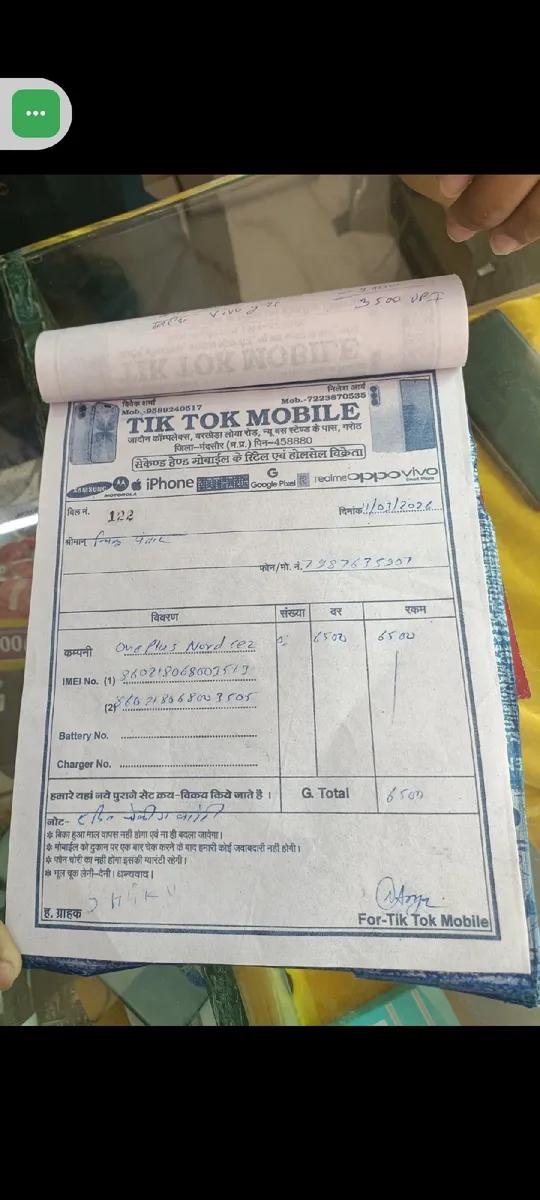 3500 UPI
TIK TOK MOBILE
विवेक शर्मा
Mob.-9589240517
निलेश आर्य
Mob.-7223870535
TIK TOK MOBILE
जादौन कॉम्पलेक्स, बरखेडा लोया रोड, न्यू बस स्टेण्ड के पास, गरोठ
जिला-मंदसौर (म.प्र.) पिन-458880
सेकेण्ड हेण्ड मोबाईल के रिटेल एवं होलसेल विक्रेता
SAMSUNG MOTOROLA iPhone G Google Pixel realme oppo vivo Smart Phone
बिल नं. 122 दिनांक 11/03/2026
श्रीमान्
फोन/मो. नं. 7987635907
विवरण संख्या दर रकम
कम्पनी OnePlus Nord ce2 6500 6500
IMEI No. (1) 860218068003513
(2) 860218068003505
Battery No.
Charger No.
हमारे यहां नये पुराने सेट क्रय-विक्रय किये जाते है। G. Total 6500
नोट-
* बिका हुआ माल वापस नही होगा एवं ना ही बदला जायेगा।
* मोबाईल को दुकान पर एक बार चेक करने के बाद हमारी कोई जवाबदारी नही होगी।
* फोन चोरी का नही होगा इसकी ग्यारंटी रहेगी।
* भूल चूक लेनी-देनी। धन्यवाद।
ह. ग्राहक For-Tik Tok Mobile